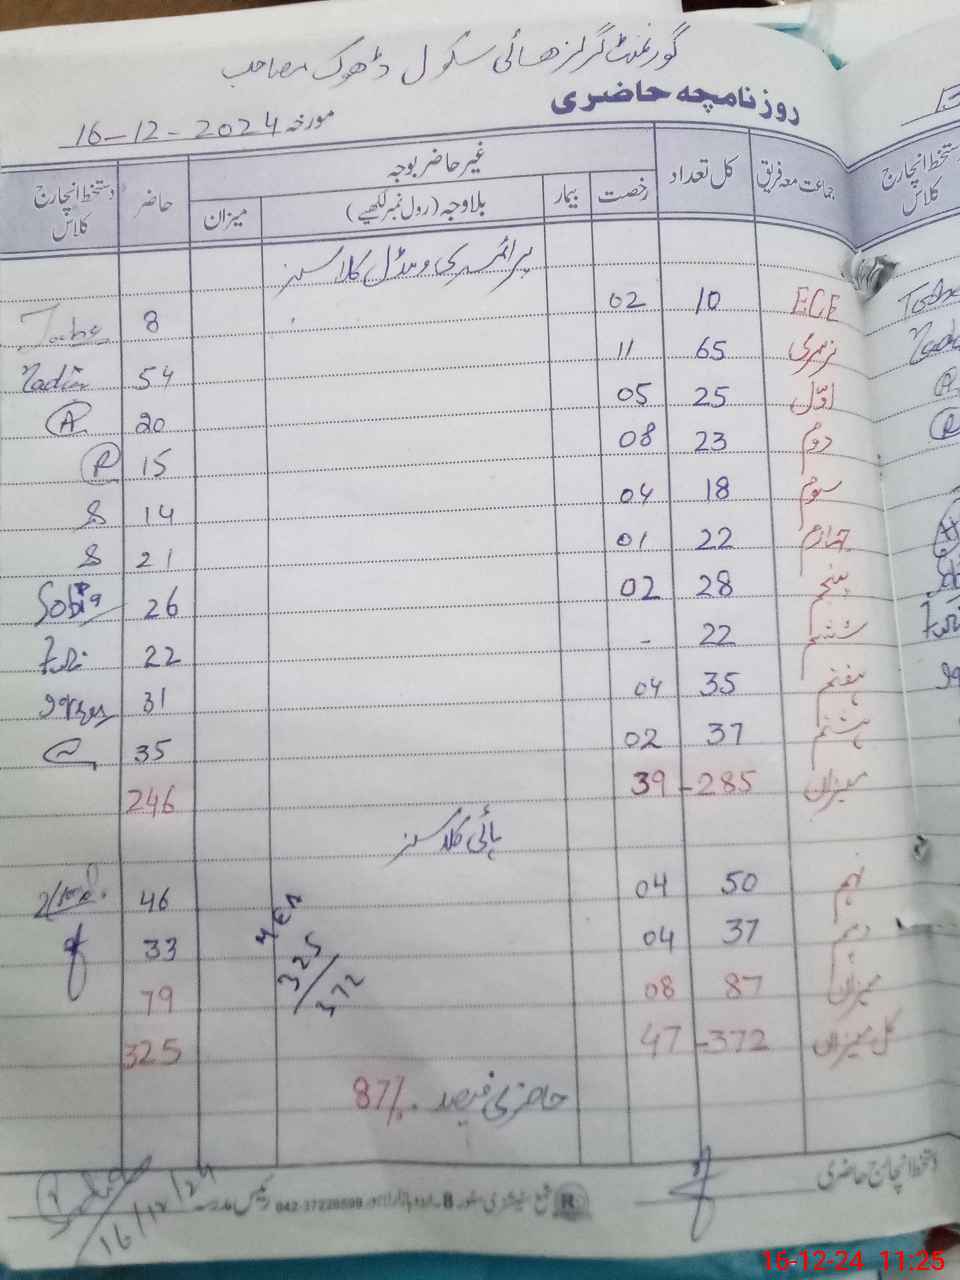 گورنمنٹ گرلز ھائی سکول ڈھوک صاحب
روزنامچہ حاضری
مورخہ 16-12-2024
جماعت معہ فریق کل تعداد غیر حاضر بوجہ حاضر دستخط انچارج کلاس
رخصت بیمار بلاوجہ (رول نمبر لکھیے) میزان
پرائمری و مڈل کلاسز
ECE 10 02 8
نرسری 65 11 54 Nadia
اوّل 25 05 20 A
دوم 23 08 15 R
سوم 18 04 14 S
چہارم 22 01 21 S
پنجم 28 02 26 Sobia
ششم 22 - 22
ہفتم 35 04 31
ہشتم 37 02 35
میزان 285 - 39 246
ہائی کلاسز
نہم 50 04 46
دہم 37 04 33
میزان 87 08 79
کل میزان 372 - 47 325
325/372
حاضری فیصد 87%
دستخط انچارج حاضری
رئیس مدرسہ
16/12/24
دستخط انچارج کلاس
16-12-24 11:25